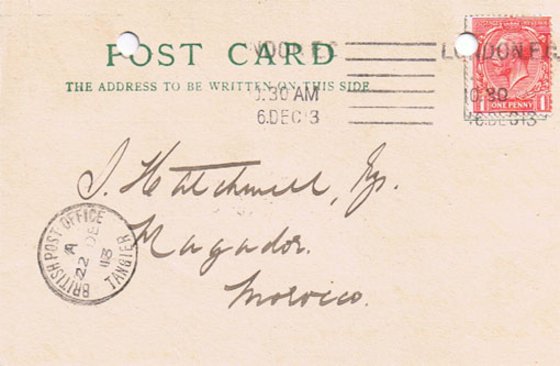 POST CARD
THE ADDRESS TO BE WRITTEN ON THIS SIDE
NDON.F.S
.30 AM
6.DEC 13
LONDON.F.S.
10.30
6.DEC 13
ONE PENNY
Esq.
Magador.
Morocco.
BRITISH POST OFFICE
A
22 DE
13
TANGIER